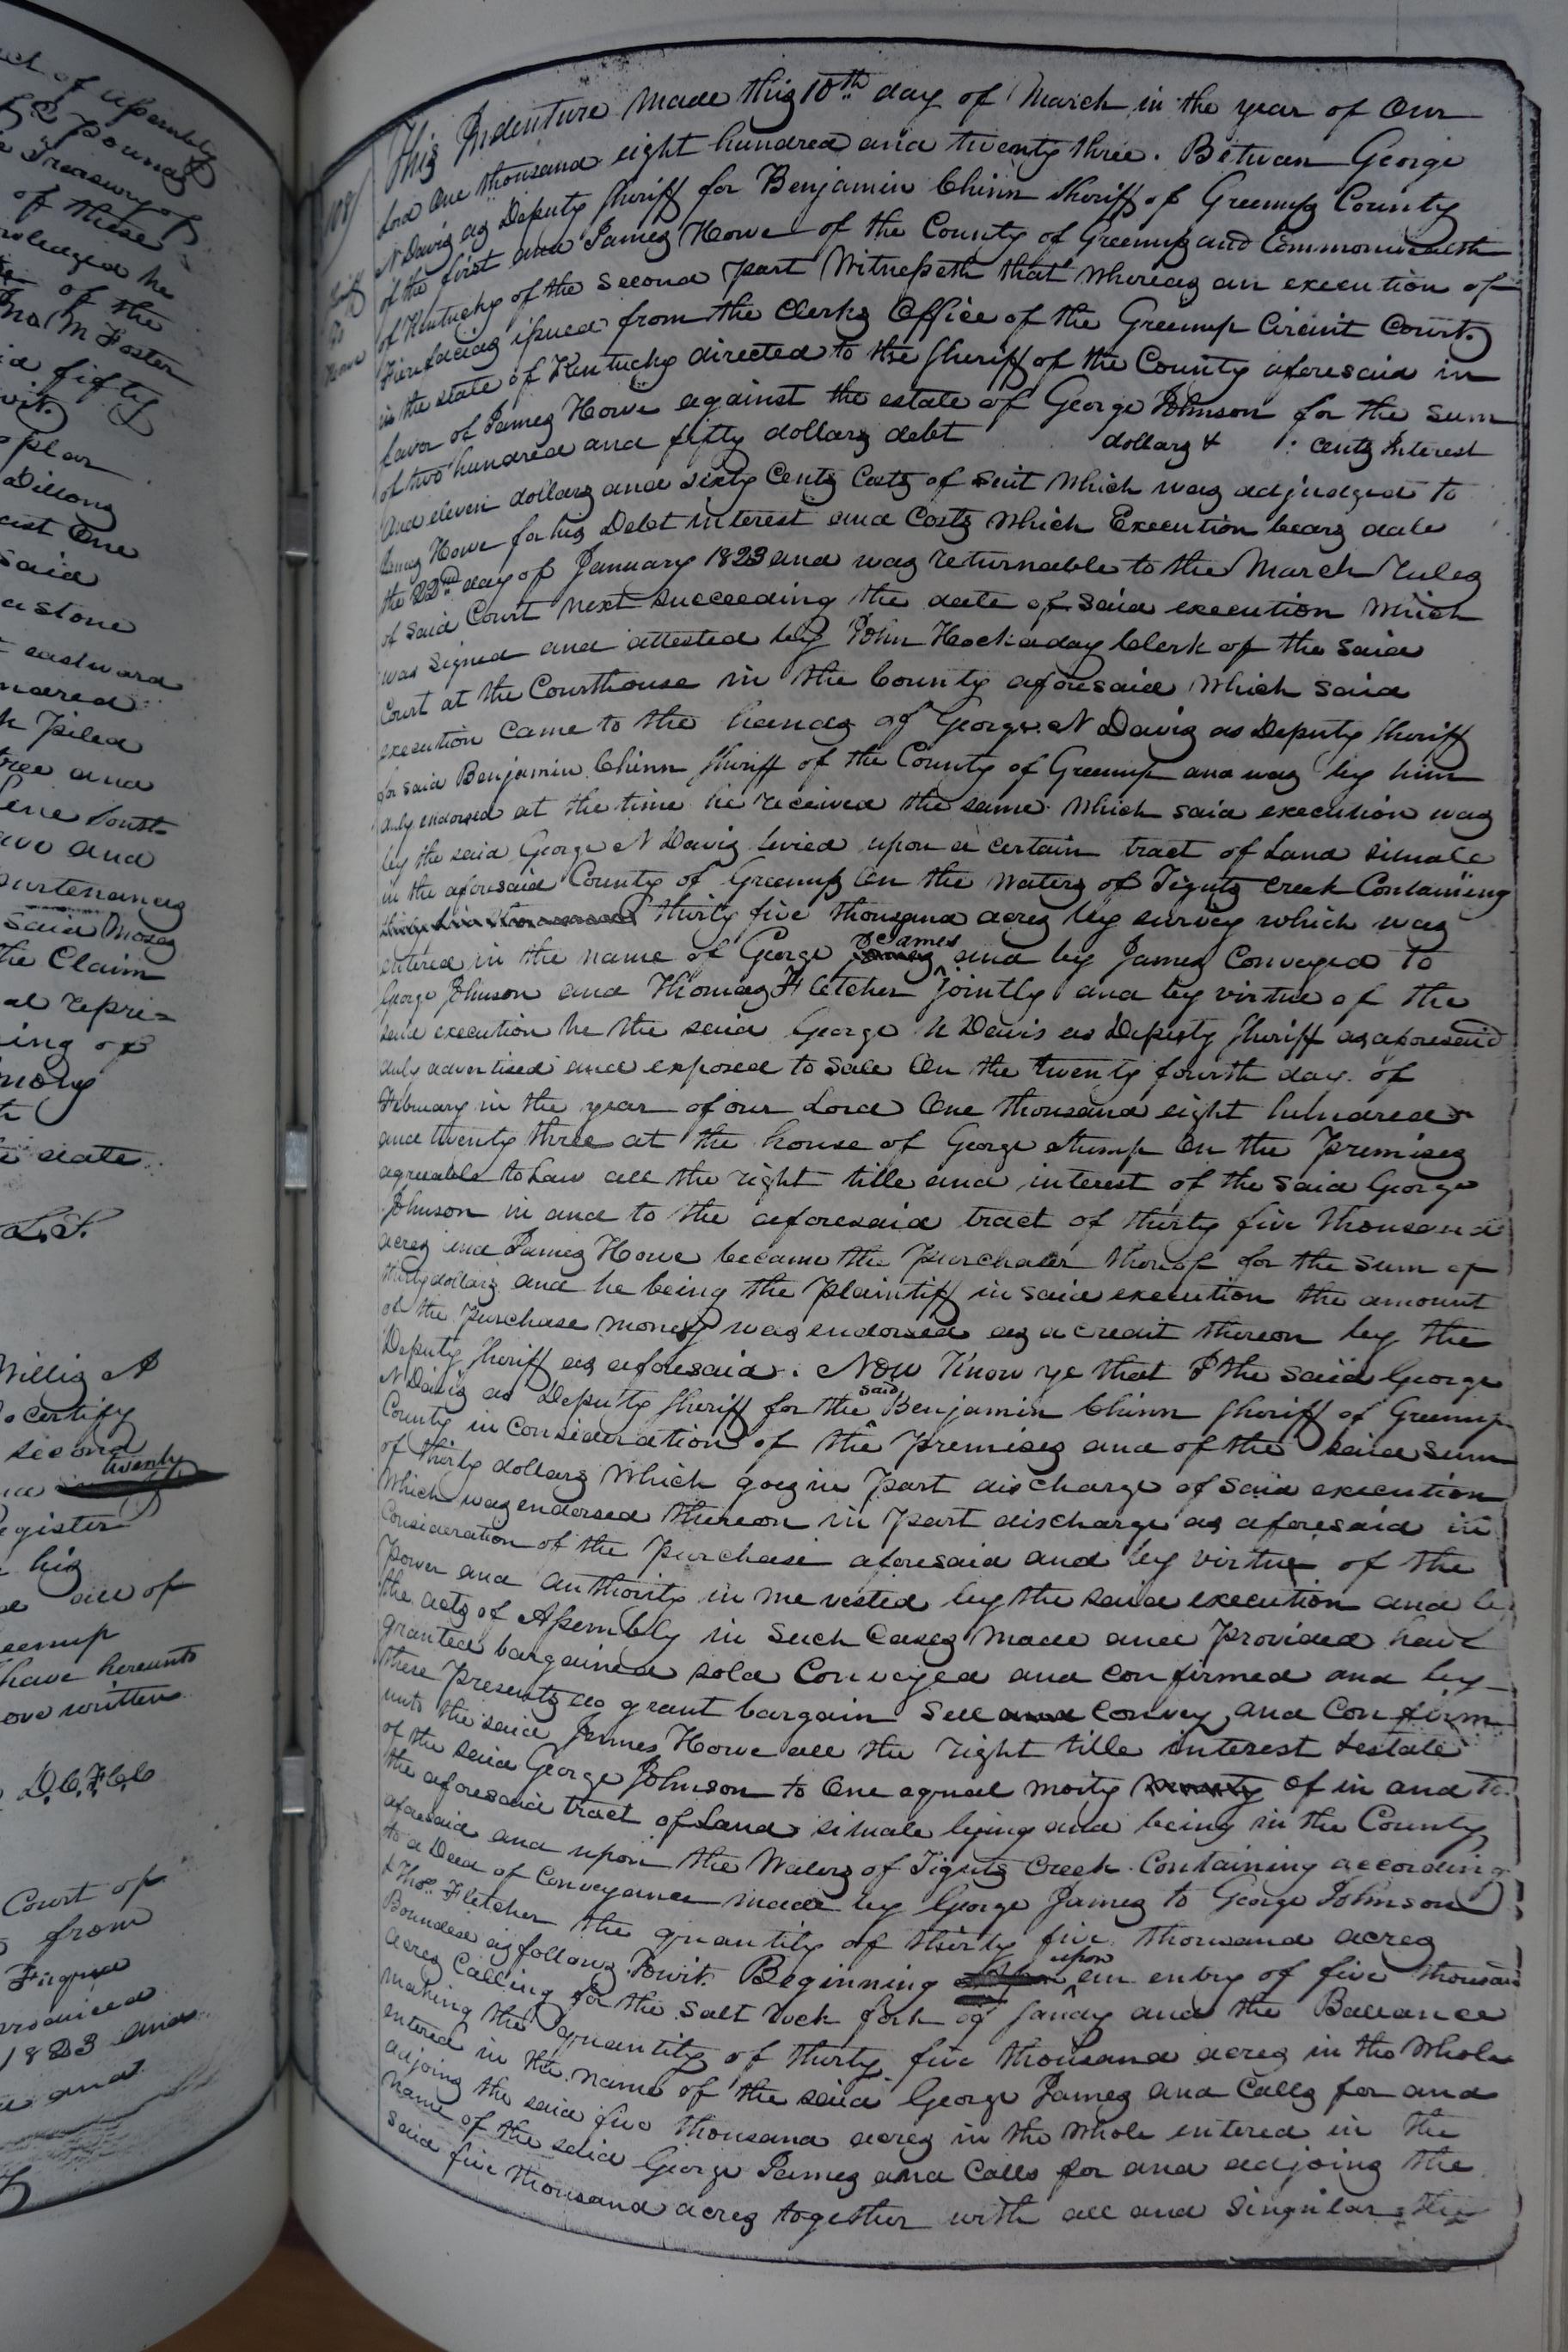 ct of assembly
pounds
Treasury of
of these
wledged he
of the
Jno M Foster
id fifty
wit.
plar
Dillons
east One
Said
a stone
eastward
ndred
h piled
tree and
line
ave and
purtenances
Said Moses
the Claim
al repri=
ing of
mony
date
L.S.
Willis A
do certify
second
twenty
register
his
all of
eenup
have hereunto
ove written
D.C.F.G.C.
Court of
from
1823 and
and
108/
This Indenture Made this 10th day of March in the year of Our
Lord One thousand eight hundred and twenty three. Between George
N Davis as Deputy Sheriff for Benjamin Chinn Sheriff of Greenup County
of the first and James Howe of the County of Greenup and Commonwealth
of Kentucky of the Second part Witnesseth that whereas an execution of
Fierifacias issued from the Clerks Office of the Greenup Circuit Court
in the state of Kentucky directed to the Sheriff of the County aforesaid in
favor of James Howe against the estate of George Johnson for the Sum
of two hundred and fifty dollars debt dollars & cents Interest
And eleven dollars and sixty Cents Costs of Suit Which was adjudged to
James Howe for his Debt interest and Costs Which Execution bears date
the 22nd day of January 1823 and was returnable to the March rules
of said Court next succeeding the date of said execution Which
was Signed and attested by John Hockaday Clerk of the said
Court at the Courthouse in the County aforesaid Which said
execution came to the hands of George N Davis as Deputy Sheriff
for said Benjamin Chinn Sheriff of the County of Greenup and was by him
duly endorsed at the time he received the same Which said execution was
by the said George N Davis levied upon a certain tract of Land situate
in the aforesaid County of Greenup On the Waters of Tiguts Creek Containing
thirty five thousand acres by survey which was
James
entered in the name of George and by James Conveyed to
George Johnson and Thomas Fletcher jointly and by virtue of the
said execution he the said George N Davis as Deputy Sheriff as aforesaid
duly advertised and exposed to Sale On the twenty fourth day of
February in the year of our Lord One thousand eight hulndred
and twenty three at the house of George Stump On the Premises
agreeable to Law all the right title and interest of the said George
Johnson in and to the aforesaid tract of thirty five thousand
acres and James Howe became the Purchaser thereof for the Sum of
thirty dollars and he being the Plaintiff in said execution the amount
of the Purchase money was endorsed as a credit thereon by the
Deputy Sheriff as aforesaid. Now Know ye that I the said George
said
N Davis as Deputy Sheriff for the Benjamin Chinn Sheriff of Greenup
County in Consideration of the Premises and of the said Sum
of thirty dollars Which goes in Part discharge of Said execution
Which was endorsed thereon in Part discharge as aforesaid in
Consideration of the Purchase aforesaid and by virtue of the
Power and authority in me vested by the said execution and by
the acts of Assembly in Such Cases Made and Provided have
granted bargained sold Conveyed and confirmed and by
these Presents do grant bargain Sell and convey and Confirm
unto the said James Howe all the right title interest & estate
of the said George Johnson to One equal moity of in and to
the aforesaid tract of Land situate lying and being in the County
aforesaid and upon the Waters of Tiguts Creek Containing according
to a Deed of Conveyance made by George James to George Johnson
& Thos. Fletcher the quantity of thirty five thousand acres
upon
Bounded as follows Towit. Beginning an entry of five thousand
acres Calling for the Salt lick fork of Sandy and the Ballance
making the quantity of thirty five thousand acres in the Whole
entered in the name of the said George James and Calls for and
adjoing the said five thousand acres in the Whole entered in the
name of the said George James and Calls for and adjoing the
said five thousand acres together with all and Singular the